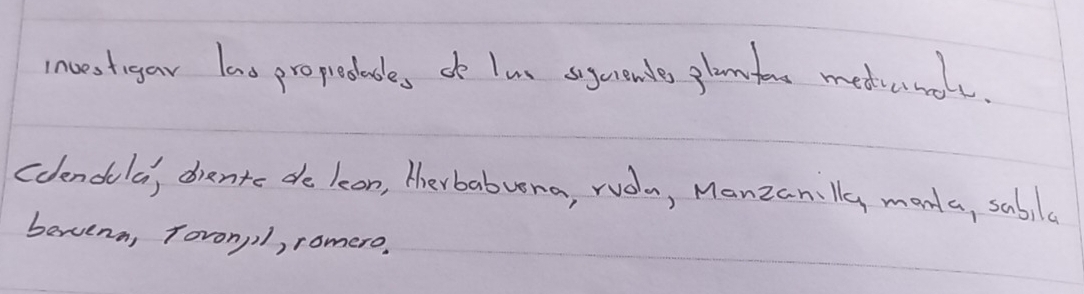 investigar las propiedades de las siguientes plantas medicinales.
Caléndula, diente de leon, Hierbabuena, ruda, Manzanilla, menta, sabila
berbena, Toronjil, romero.